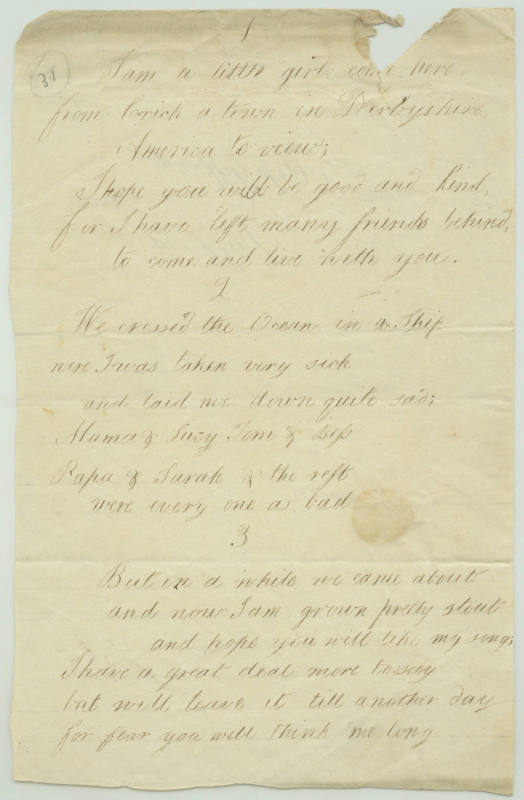 1
31
I am a little girl come here,
from Crich a town in Derbyshire,
America to view;
I hope you will be good and kind,
for I have left many friends behind,
to come and live with you.
2
We crossed the Ocean in a Ship
were I was taken very sick
and laid me down quite sad;
Mama & Suzy Tom & Bess
Papa & Sarah & the rest
were every one as bad
3
But in a while we came about
and now I am grown pretty stout
and hope you will like my song;
I have a great deal more to say
but will leave it till another day
for fear you will think me long